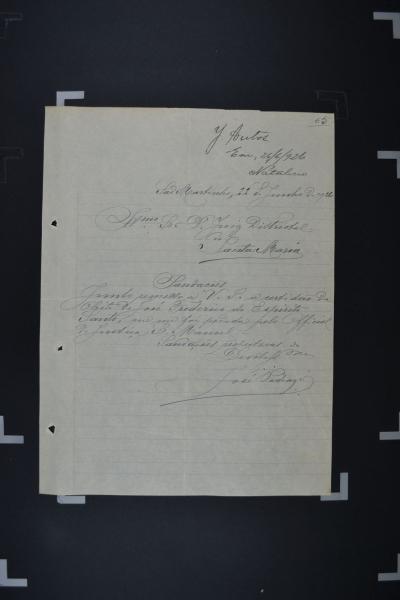 J Autos
Em, 26/6/926
Natalicio
São Martinho, 22 de Junho de 1926
Illmo. Sr. Dr. Juiz Districtal
Santa Maria
Saudações
Junto remetto a V. S. a certidão de
obito de José Frederico do Espirito
Santo, que me foi pedida pelo Official
de Justiça S. Manoel
Saudações
José